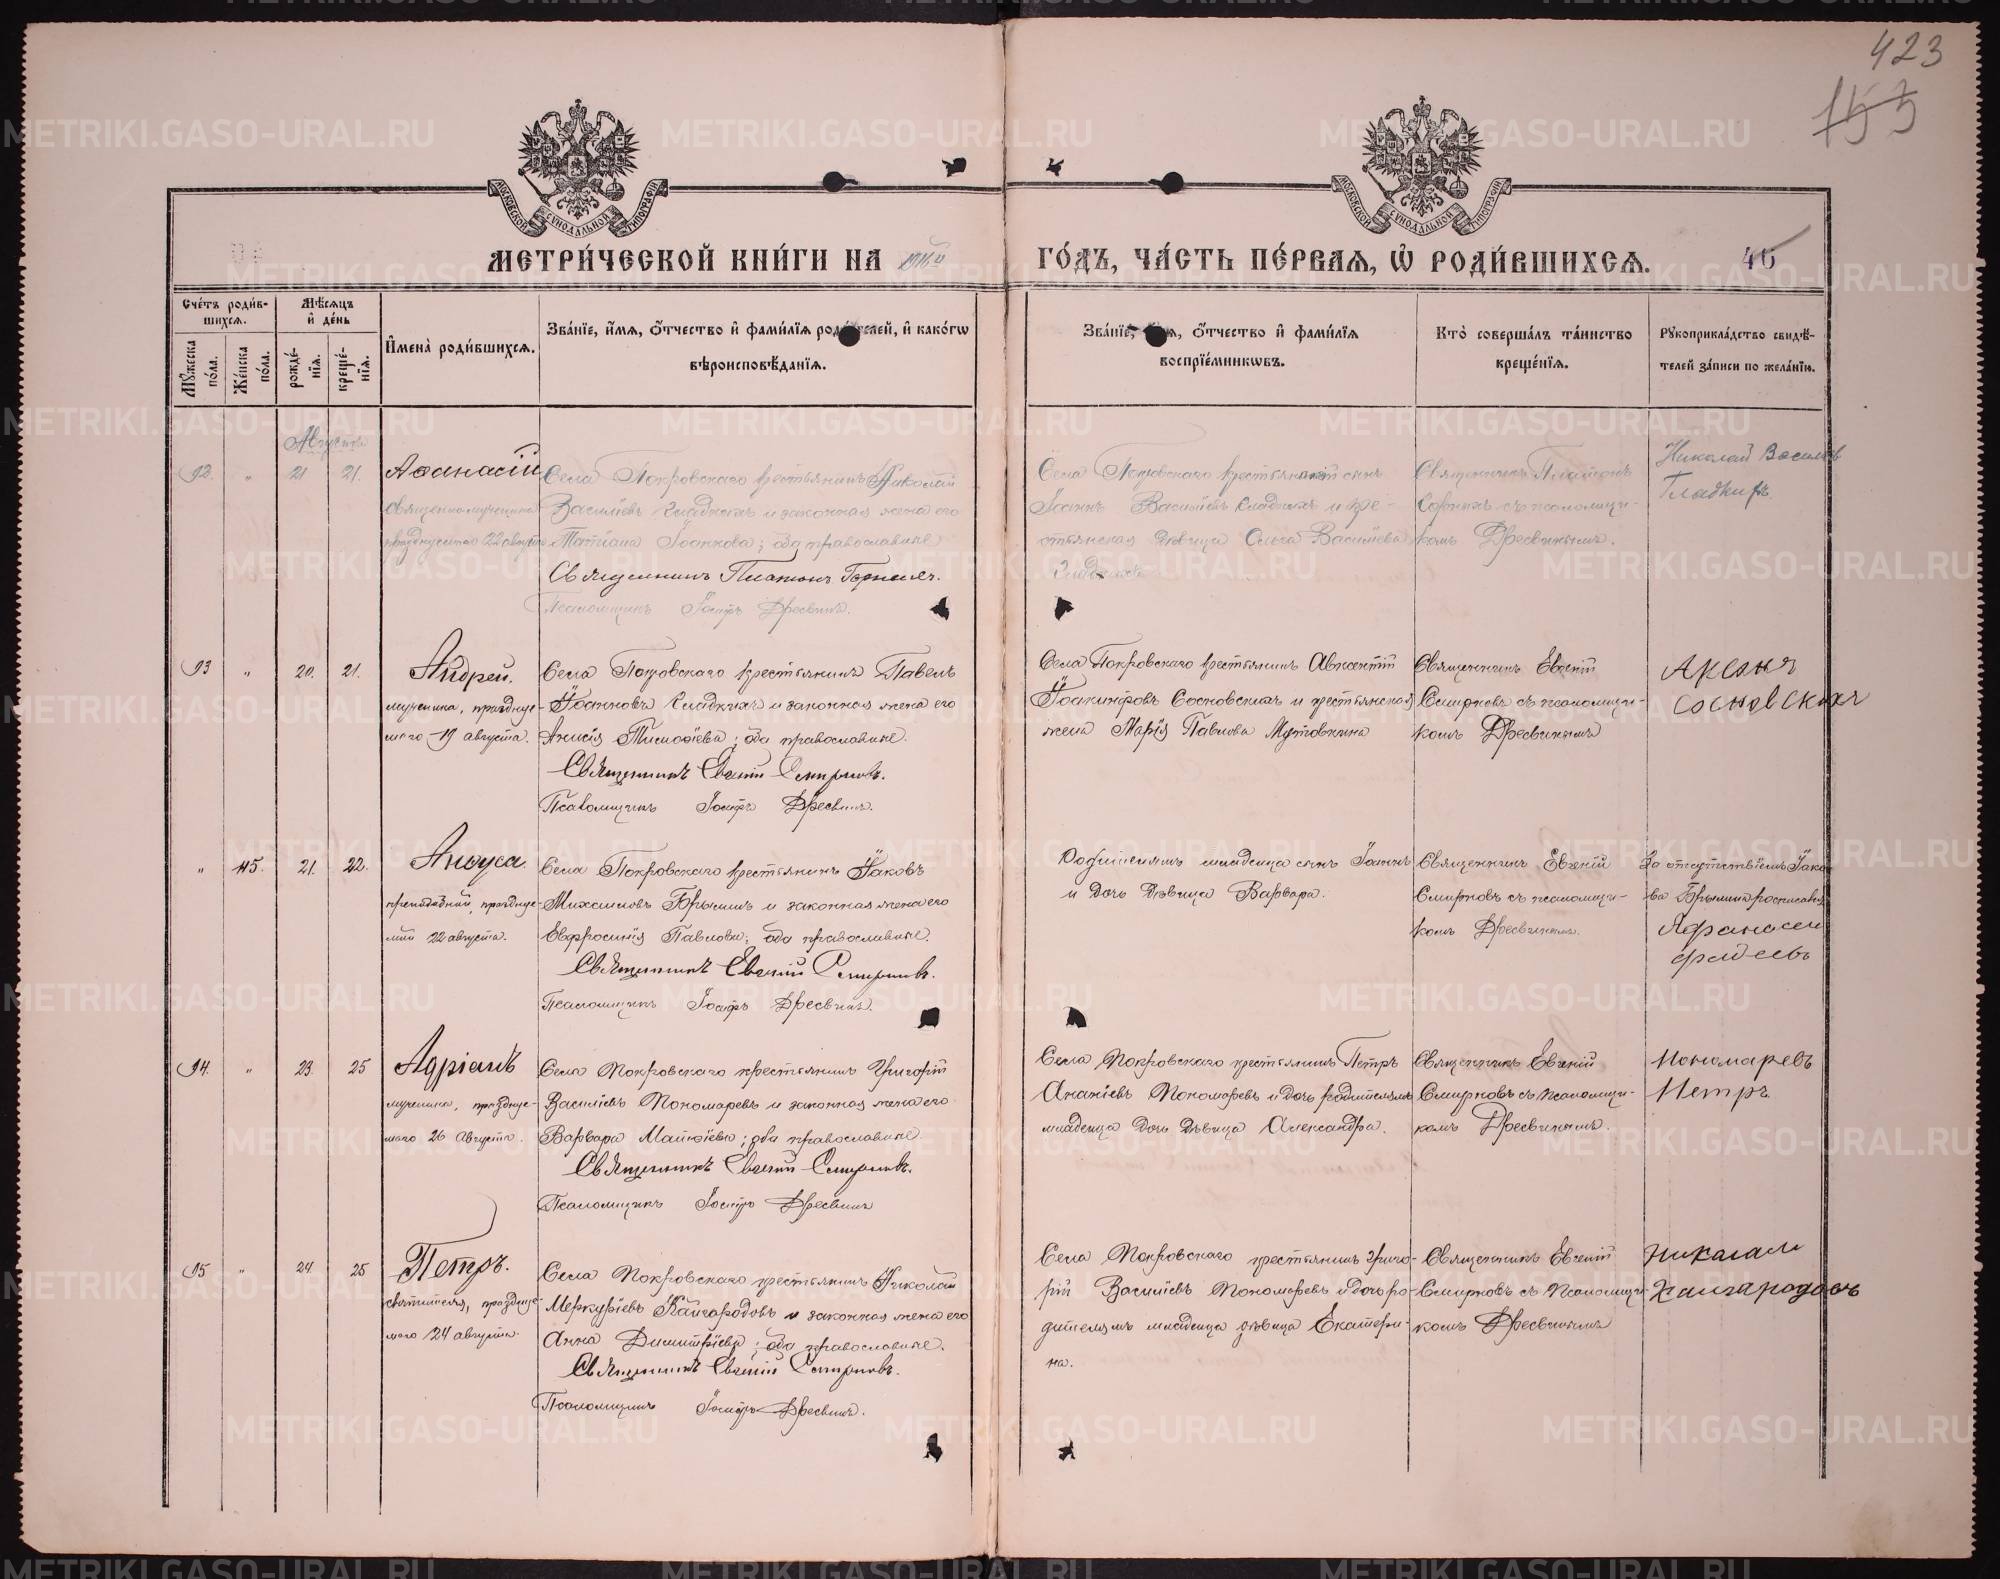 423
153
МОСКОВСКОЙ СѴНОДАЛЬНОЙ ТИПОГРАФІИ
МОСКОВСКОЙ СѴНОДАЛЬНОЙ ТИПОГРАФІИ
МЕТРИ́ЧЕСКОЙ КНИ́ГИ НА
ГО́ДЪ, ЧА́СТЬ ПЕ́РВАѦ, Ѡ҆ РОДИ́ВШИХСѦ.
46
Сче́тъ роди́в-
шихсѧ.
Мѣ́сѧцъ
и҆ де́нь
Мꙋ́жеска по́ла.
Же́нска по́ла.
рожде́-нїѧ.
креще́-нїѧ.
И҆мена̀ роди́вшихсѧ.
Зва́нїе, и҆́мѧ, ѻ҆́тчество и҆ фами́лїѧ роди́телей, и҆ како́гѡ
вѣроисповѣ́данїѧ.
Зва́нїе, и҆́мѧ, ѻ҆́тчество и҆ фами́лїѧ
воспрїе́мникѡвъ.
Кто̀ соверша́лъ та́инство
креще́нїѧ.
Рꙋкоприкла́дство свидѣ́-
телей за́писи по жела́нїю.
Августа
92. " 21 21. Аѳанасій
священномученика
празднуемаго 22 августа
Села Покровскаго крестьянинъ Николай
Василіевъ Гладкихъ и законная жена его
Татіана Іоаннова; оба православные
Священникъ Платонъ Горныхъ.
Псаломщикъ Іосифъ Дресвинъ.
Села Покровскаго крестьянскій сынъ
Іоаннъ Василіевъ Гладкихъ и кре-
стьянская дѣвица Ольга Василіева
Гладкихъ
Священникъ Платонъ
Горныхъ съ псаломщи-
комъ Дресвинымъ.
Николай Васильевъ
Гладкихъ
93 " 20. 21. Андрей.
мученика, праздкуе-
маго 19 августа.
Села Покровскаго крестьянинъ Павелъ
Іоанновъ Гладкихъ и законная жена его
Анисія Тимоѳіева; оба православные.
Священникъ Евгеній Смирновъ.
Псаломщикъ Іосифъ Дресвинъ.
Села Покровскаго крестьянинъ Авксентій
Іоакинфовъ Сосновскихъ и крестьянская
жена Марія Павлова Мутовкина
Священникъ Евгеній
Смирновъ съ псаломщи-
комъ Дресвинымъ
Аксенъя
сосновскихъ
" 115. 21. 22. Анѳуса.
преподобной, праздкуе-
мой 22 августа.
Села Покровскаго крестьянинъ Іаковъ
Михаиловъ Брылинъ и законная жена его
Евфросинія Павлова; оба православные.
Священникъ Евгеній Смирновъ.
Псаломщикъ Іосифъ Дресвинъ.
Родителямъ младенца сынъ Іоаннъ
и дочь дѣвица Варвара.
Священникъ Евгеній
Смирновъ съ псаломщи-
комъ Дресвинымъ.
За отсутствіемъ Іако-
ва Брылина росписался
Афанасей
94. " 23. 25 Адріанъ
мученика, праздкуе-
маго 26 августа.
Села Покровскаго крестьянинъ Григорій
Василіевъ Пономаревъ и законная жена его
Варвара Матѳіева; оба православные.
Священникъ Евгеній Смирновъ.
Псаломщикъ Іосифъ Дресвинъ
Села Покровскаго крестьянинъ Петръ
Ананіевъ Пономаревъ и дочь родителямъ
младенца дочь дѣвица Александра.
Священникъ Евгеній
Смирновъ съ псаломщи-
комъ Дресвинымъ.
Пономаревъ
Петръ
95 " 24 25 Петръ.
святителя, праздкуе-
маго 24 августа.
Села Покровскаго крестьянинъ Николай
Меркуріевъ Кайгородовъ и законная жена его
Анна Димитріева; оба православные.
Священникъ Евгеній Смирновъ.
Псаломщикъ Іосифъ Дресвинъ.
Села Покровскаго крестьянинъ Григо-
рій Василіевъ Пономаревъ и дочь ро-
дителямъ младенца дѣвица Екатери-
на.
Священникъ Евгеній
Смирновъ съ псаломщи-
комъ Дресвинымъ
Николай
Кайгародовъ